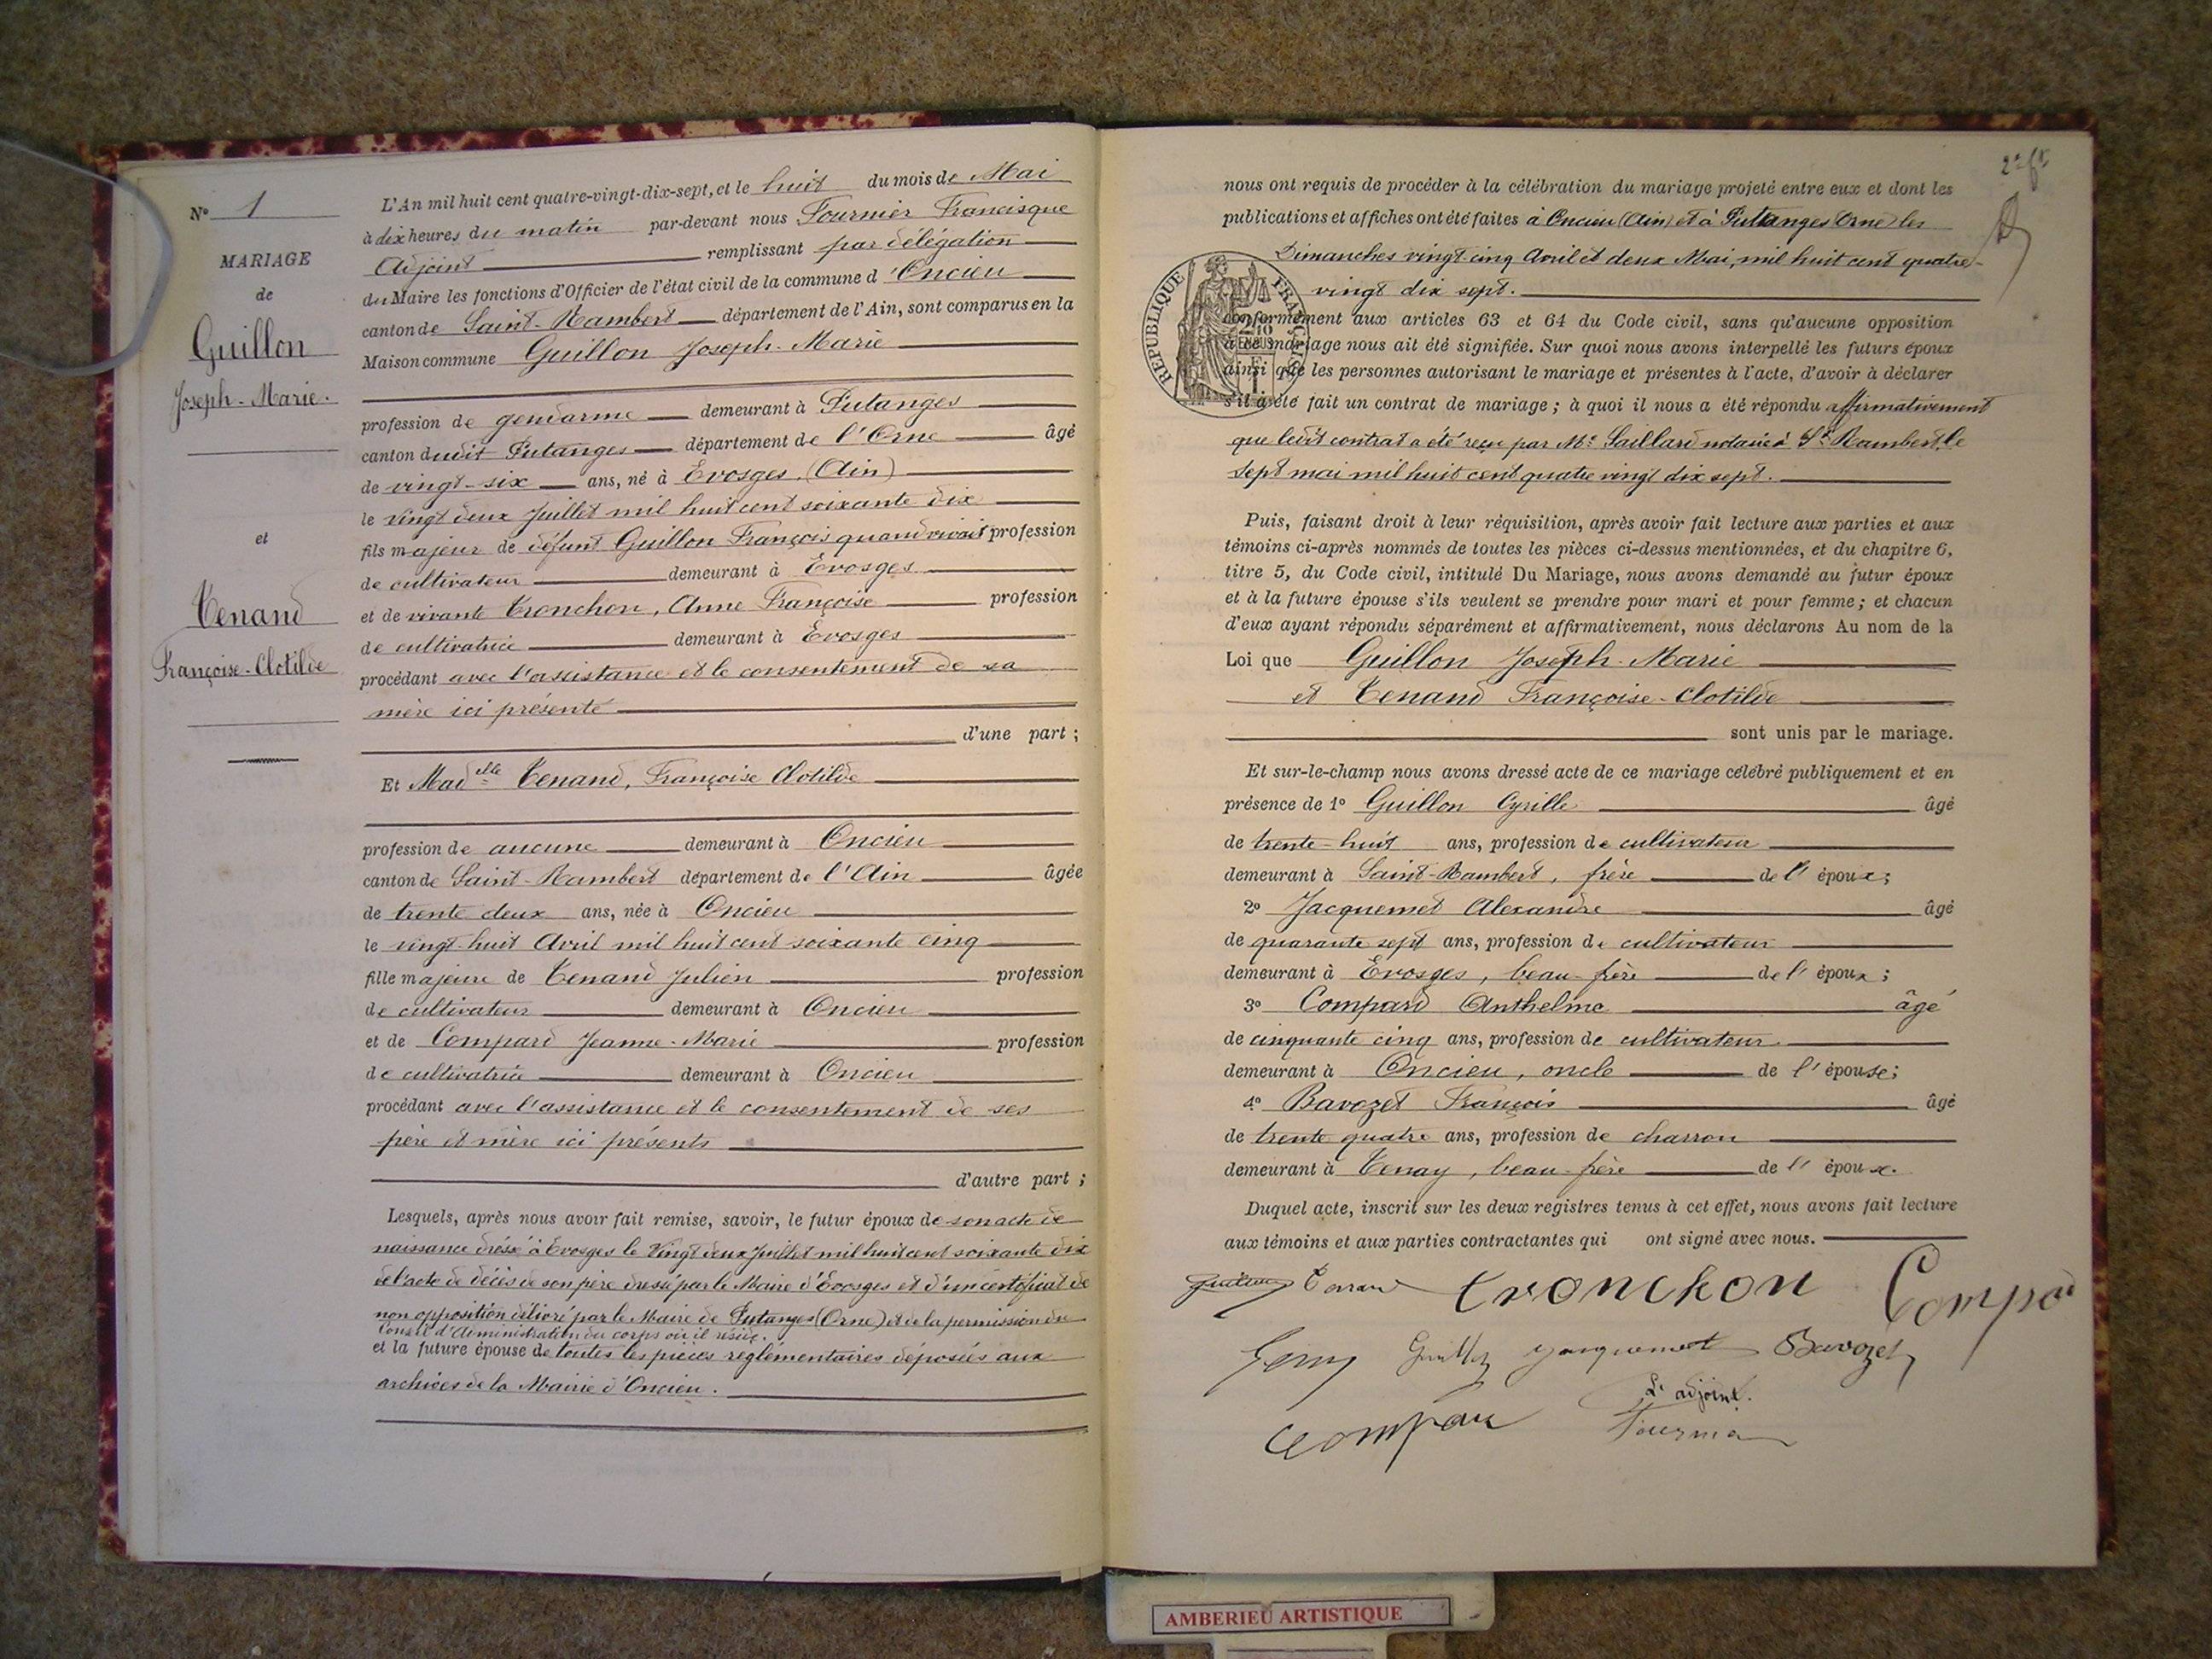 N° 1
MARIAGE
de
Guillon
Joseph-Marie.
et
Tenand
Françoise-Clotilde
L'An mil huit cent quatre-vingt-dix-sept, et le huit du mois de Mai
à dix heures du matin par-devant nous Fournier Francisque
Adjoint remplissant par délégation
du Maire les fonctions d'Officier de l'état civil de la commune d'Oncieu
canton de Saint-Rambert département de l'Ain, sont comparus en la
Maison commune Guillon Joseph-Marie
profession de gendarme demeurant à Putanges
canton dudit Putanges département de l'Orne âgé
de vingt-six ans, né à Evosges, (Ain)
le vingt deux Juillet mil huit cent soixante dix
fils majeur de défunt Guillon François quand vivait profession
de cultivateur demeurant à Evosges
et de vivante Tronchon, Anne Françoise profession
de cultivatrice demeurant à Evosges
procédant avec l'assistance et le consentement de sa
mère ici présente
d'une part ;
Et Madelle Tenand, Françoise Clotilde
profession de aucune demeurant à Oncieu
canton de Saint-Rambert département de l'Ain âgée
de trente deux ans, née à Oncieu
le vingt-huit Avril mil huit cent soixante cinq
fille majeure de Tenand Julien profession
de cultivateur demeurant à Oncieu
et de Compard Jeanne-Marie profession
de cultivatrice demeurant à Oncieu
procédant avec l'assistance et le consentement de ses
père et mère ici présents
d'autre part ;
Lesquels, après nous avoir fait remise, savoir, le futur époux de son acte de
naissance dréssé à Evosges le Vingt deux Juillet mil huit cent soixante dix
de l'acte de décès de son père dressé par le Maire d'Evosges et d'un certificat de
non opposition délivré par le Maire de Putanges (Orne) et de la permission du
Conseil d'Administration du corps où il réside.
et la future épouse de toutes les pièces réglémentaires déposées aux
archives de la Mairie d'Oncieu.
nous ont requis de procéder à la célébration du mariage projeté entre eux et dont les
publications et affiches ont été faites à Oncieu (Ain) et à Putanges (Orne) les
Dimanches vingt-cinq Avril et deux Mai, mil huit cent quatre-
vingt dix sept.
REPUBLIQUE FRANÇAISE
conformément aux articles 63 et 64 du Code civil, sans qu'aucune opposition
à ce mariage nous ait été signifiée. Sur quoi nous avons interpellé les futurs époux
ainsi que les personnes autorisant le mariage et présentes à l'acte, d'avoir à déclarer
s'il a été fait un contrat de mariage ; à quoi il nous a été répondu affirmativement
que ledit contrat a été reçu par Me Saillard notaire à St Rambert, le
sept mai mil huit cent quatre vingt dix sept.
Puis, faisant droit à leur réquisition, après avoir fait lecture aux parties et aux
témoins ci-après nommés de toutes les pièces ci-dessus mentionnées, et du chapitre 6,
titre 5, du Code civil, intitulé Du Mariage, nous avons demandé au futur époux
et à la future épouse s'ils veulent se prendre pour mari et pour femme ; et chacun
d'eux ayant répondu séparément et affirmativement, nous déclarons Au nom de la
Loi que Guillon Joseph-Marie
et Tenand Françoise-Clotilde
sont unis par le mariage.
Et sur-le-champ nous avons dressé acte de ce mariage célébré publiquement et en
présence de 1° Guillon Cyrille âgé
de trente-huit ans, profession de cultivateur
demeurant à Saint-Rambert, frère de l'époux;
2° Jacquemet Alexandre âgé
de quarante sept ans, profession de cultivateur
demeurant à Evosges, beau-frère de l'époux ;
3° Compard Anthelme âgé
de cinquante cinq ans, profession de cultivateur
demeurant à Oncieu, oncle de l'épouse;
4° Bavozet François âgé
de trente quatre ans, profession de charron
demeurant à Tenay, beau-frère de l'épouse.
Duquel acte, inscrit sur les deux registres tenus à cet effet, nous avons fait lecture
aux témoins et aux parties contractantes qui ont signé avec nous.
tronchon
jacquemet Bavozet
L'adjoint.
AMBERIEU ARTISTIQUE